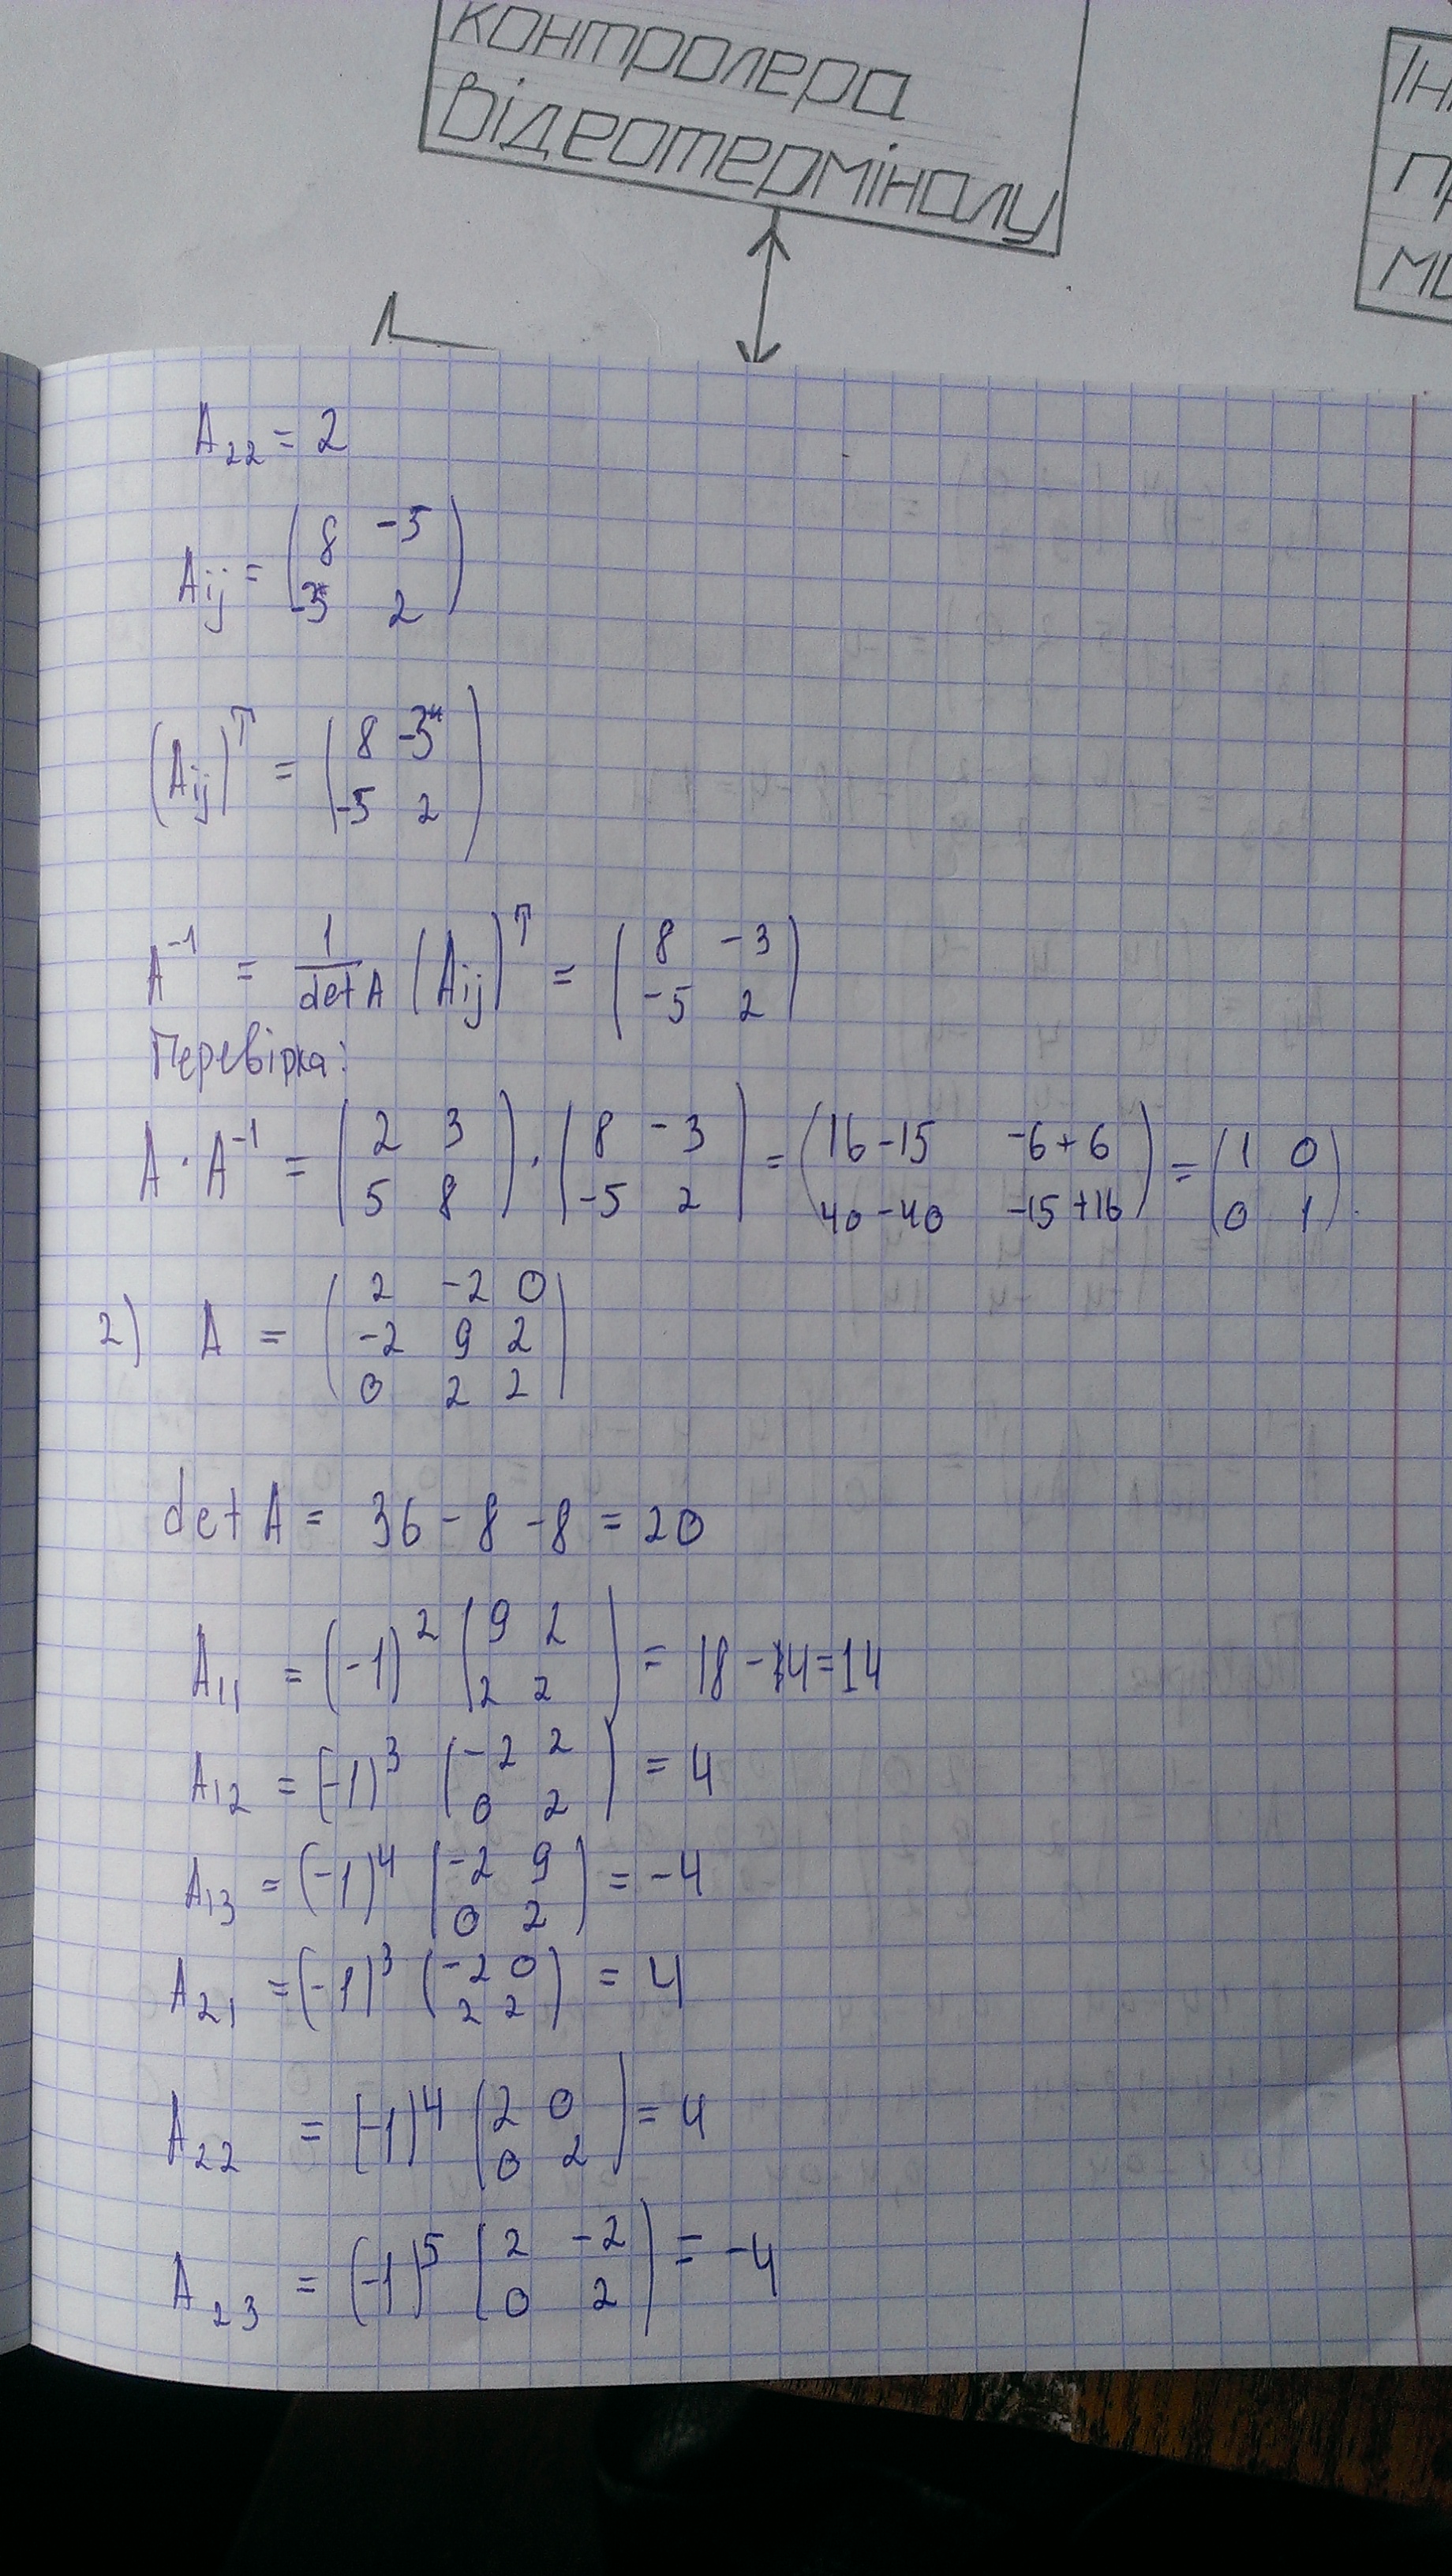 контролера
відеотерміналу
Ін
пр
мо
A₂₂ = 2
Aij = (8 -5
-3 2)
(Aij)ᵀ = (8 -3
-5 2)
A⁻¹ = 1/detA (Aij)ᵀ = (8 -3
-5 2)
Перевірка:
A · A⁻¹ = (2 3
5 8) · (8 -3
-5 2) = (16-15 -6+6
40-40 -15+16) = (1 0
0 1).
2) A = (2 -2 0
-2 9 2
0 2 2)
det A = 36 - 8 - 8 = 20
A₁₁ = (-1)² (9 2
2 2) = 18 - 4 = 14
A₁₂ = (-1)³ (-2 2
0 2) = 4
A₁₃ = (-1)⁴ (-2 9
0 2) = -4
A₂₁ = (-1)³ (-2 0
2 2) = 4
A₂₂ = (-1)⁴ (2 0
0 2) = 4
A₂₃ = (-1)⁵ (2 -2
0 2) = -4